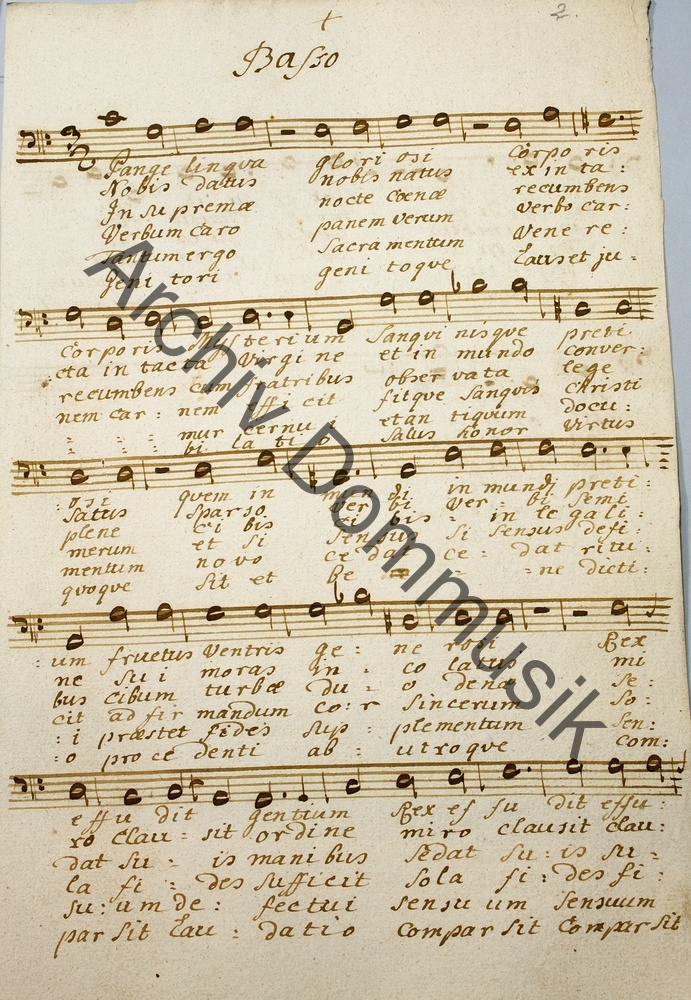 2.
Basso
3/2
Pange lingva glori osi Corpo ris
Nobis datus nobis natus ex in ta:
In su premæ nocte cœnæ recumbens
Verbum caro panem verum verbo car:
Tantum ergo Sacra mentum Vene re:
Geni tori geni toqve Laus et ju-
Corporis Mysterium Sangvi nisqve preti
cta in tacta Virgi ne et in mundo conver:
recumbens cum fratribus obser vata lege
nem car: nem effi cit fitqve Sangvis Christi
- : : mur cernu i et an tiqvum docu:
- : : bi la ti o Salus honor virtus
: osi qvem in mun di in mundi preti:
Satus Sparso ver bi ver - bi Semi
plene ci bis ci bis - in le gali:
merum et si Sensus si Sensus defi:
mentum no vo ce dat ce - dat ritu:
qvoqve Sit et be - - ne dicti:
: um fructus Ventris ge: ne rosi Rex
ne su i moras in - co latus mi
bus cibum turbæ du - o denæ se:
cit ad fir mandum co: r Sincerum So:
: i præstet fides sup: plementum sen:
: o pro ce denti ab - utroqve com:
effu dit gentium Rex ef fu dit effu:
ro Clau: sit ordine miro clausit clau:
dat su - is manibus Se dat su: is su -
la fi: des sufficit sola fi: des fi:
su: um de: fectui sensu um Sensuum
par sit Lau: datio compar sit compar sit
Archiv Dommusik